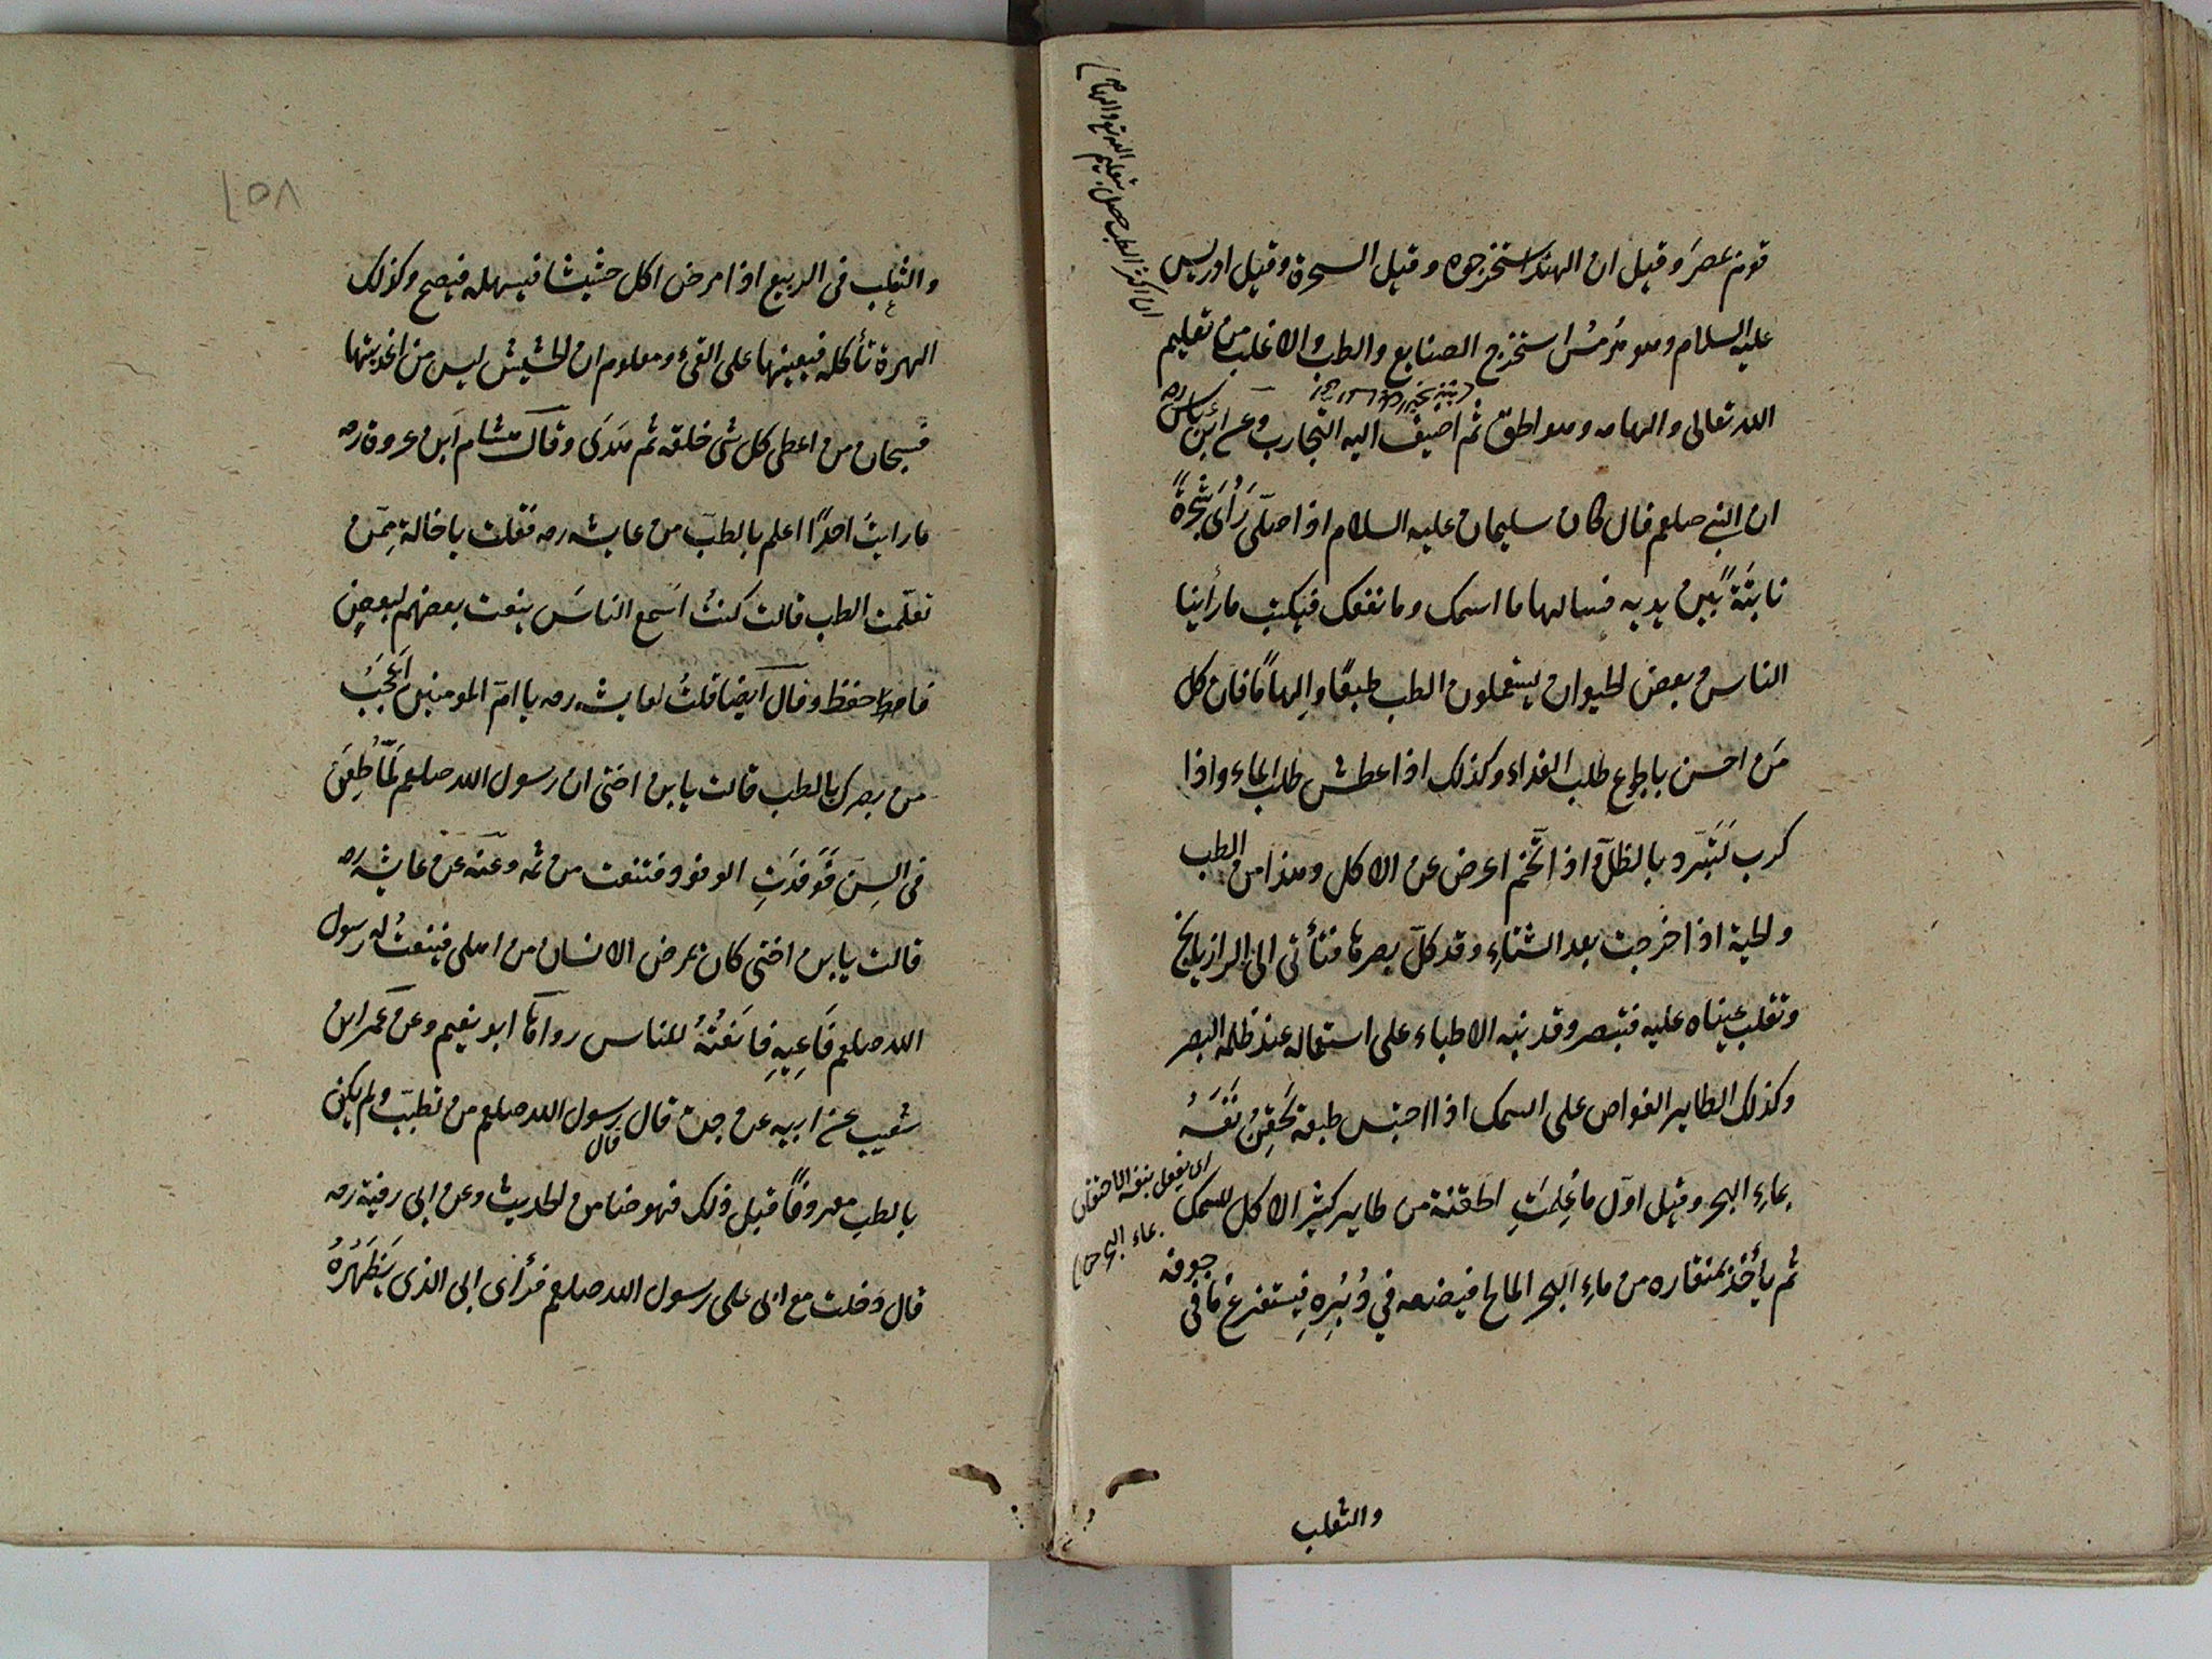 قوم عصر وقيل ان الهند استخرجوه وقيل السحرة وقيل ادريس
عليه السلام وهو هرمس استخرج الصنايع والطب والاغلب من تعليم
الله تعالى والهامه وهو الحق ثم اضيف اليه التجارب وعن ابن عباس رضه
ان النبي صلعم قال كان سليمان عليه السلام اذا صلّى رَأى شجرةً
نابتةً بين يديه فيسالها ما اسمك وما نفعك فيكتب ما راينا
الناس وبعض الحيوان يستعملون الطب طبعًا والهامًا فان كل
من احسن بالجوع طلب الغذاء وكذلك اذا عطش طلب الماء واذا
كرب تَبَرّد بالظلّ واذا اتّخم اعرض عن الاكل وهذا من الطب
والحية اذا خرجت بعد الشتاءِ وقد كلّ بصرها فتأتى الى الرازيانج
وتقلب عيناه عليه فتبصر وقد نبه الاطباء على استعماله عند ظلمة البصر
وكذلك الطاير الغواص على السمك اذا احتبس طبعه يَحقِنُ نَفسَهُ
بماءِ البحر وقيل اوّل ما عُلِمَتِ الحقنة من طاير كثير الاكل للسمك
ثم يأخذ بمنقاره من ماءِ البحر المالح فيضعه في دُبُرِهِ فيستفرغ ما فى جوفه
ان اكثر الطب حصل بتعليم الله تع والهامه
اى يفعل بنفسه الاحتقان
بماء البحر
والثعلب
١٥٨
والثعلب فى الربيع اذا مرض اكل حشيشا فيسهله فيصح وكذلك
الهرة تأكله فيعينها على القئ ومعلوم ان الحشيش ليس من اغذيتها
فسبحان من اعطى كل شى خلقه ثم هدَى وقال هشام ابن عروة رضه
ما رايتُ احدًا اعلم بالطبّ من عايشه رضه فقلت يا خالة مِمّن
تعلّمت الطب قالت كنتُ اَسمع الناسَ ينعت بعضهم لبعضٍ
فاحفظ وقال ايضا قلتُ لعايشه رضه يا امّ المومنين اَعجَبُ
من بصرك بالطب قالت يا بن اختى ان رسول الله صلعم لَمّا طُعِنَ
فى السِنّ فَوَفَدَتِ الوفود فتنعت من ثمه وعنه عن عايشه رضه
قالت يا بن اختى كان يمرض الانسان من اهلى فينعتُ له رسول
الله صلعم فَاَعِيهِ فاَنعَتُهُ للناس رواهما ابو نعيم وعن عمر ابن
شُعيب عن ابيه عن جده قال قال رسول الله صلعم من تطبّب ولم يكن
بالطبِ معروفًا قبل ذلك فهو ضامن الحديث وعن ابى رمثة رضه
قال دخلت مع ابى على رسول الله صلعم فرأى ابى الذى بِظَهرُهُ